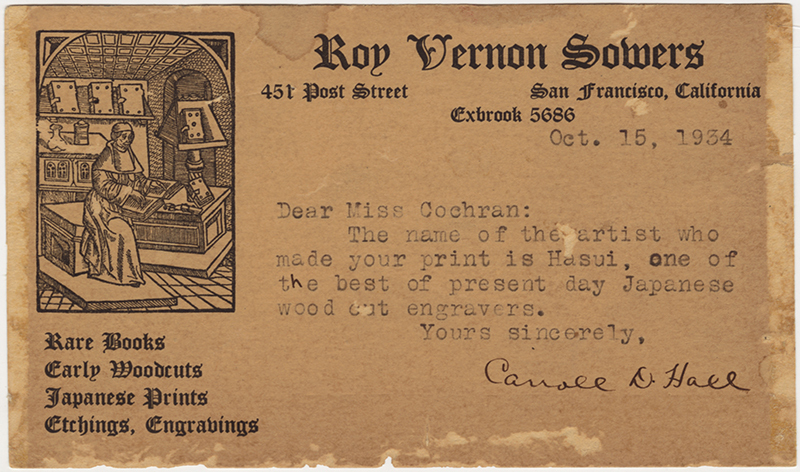 Roy Vernon Sowers
451 Post Street San Francisco, California
Exbrook 5686
Oct. 15, 1934
Dear Miss Cochran:
The name of the artist who
made your print is Hasui, one of
the best of present day Japanese
wood cut engravers.
Yours sincerely,
Carroll D. Hall
Rare Books
Early Woodcuts
Japanese Prints
Etchings, Engravings